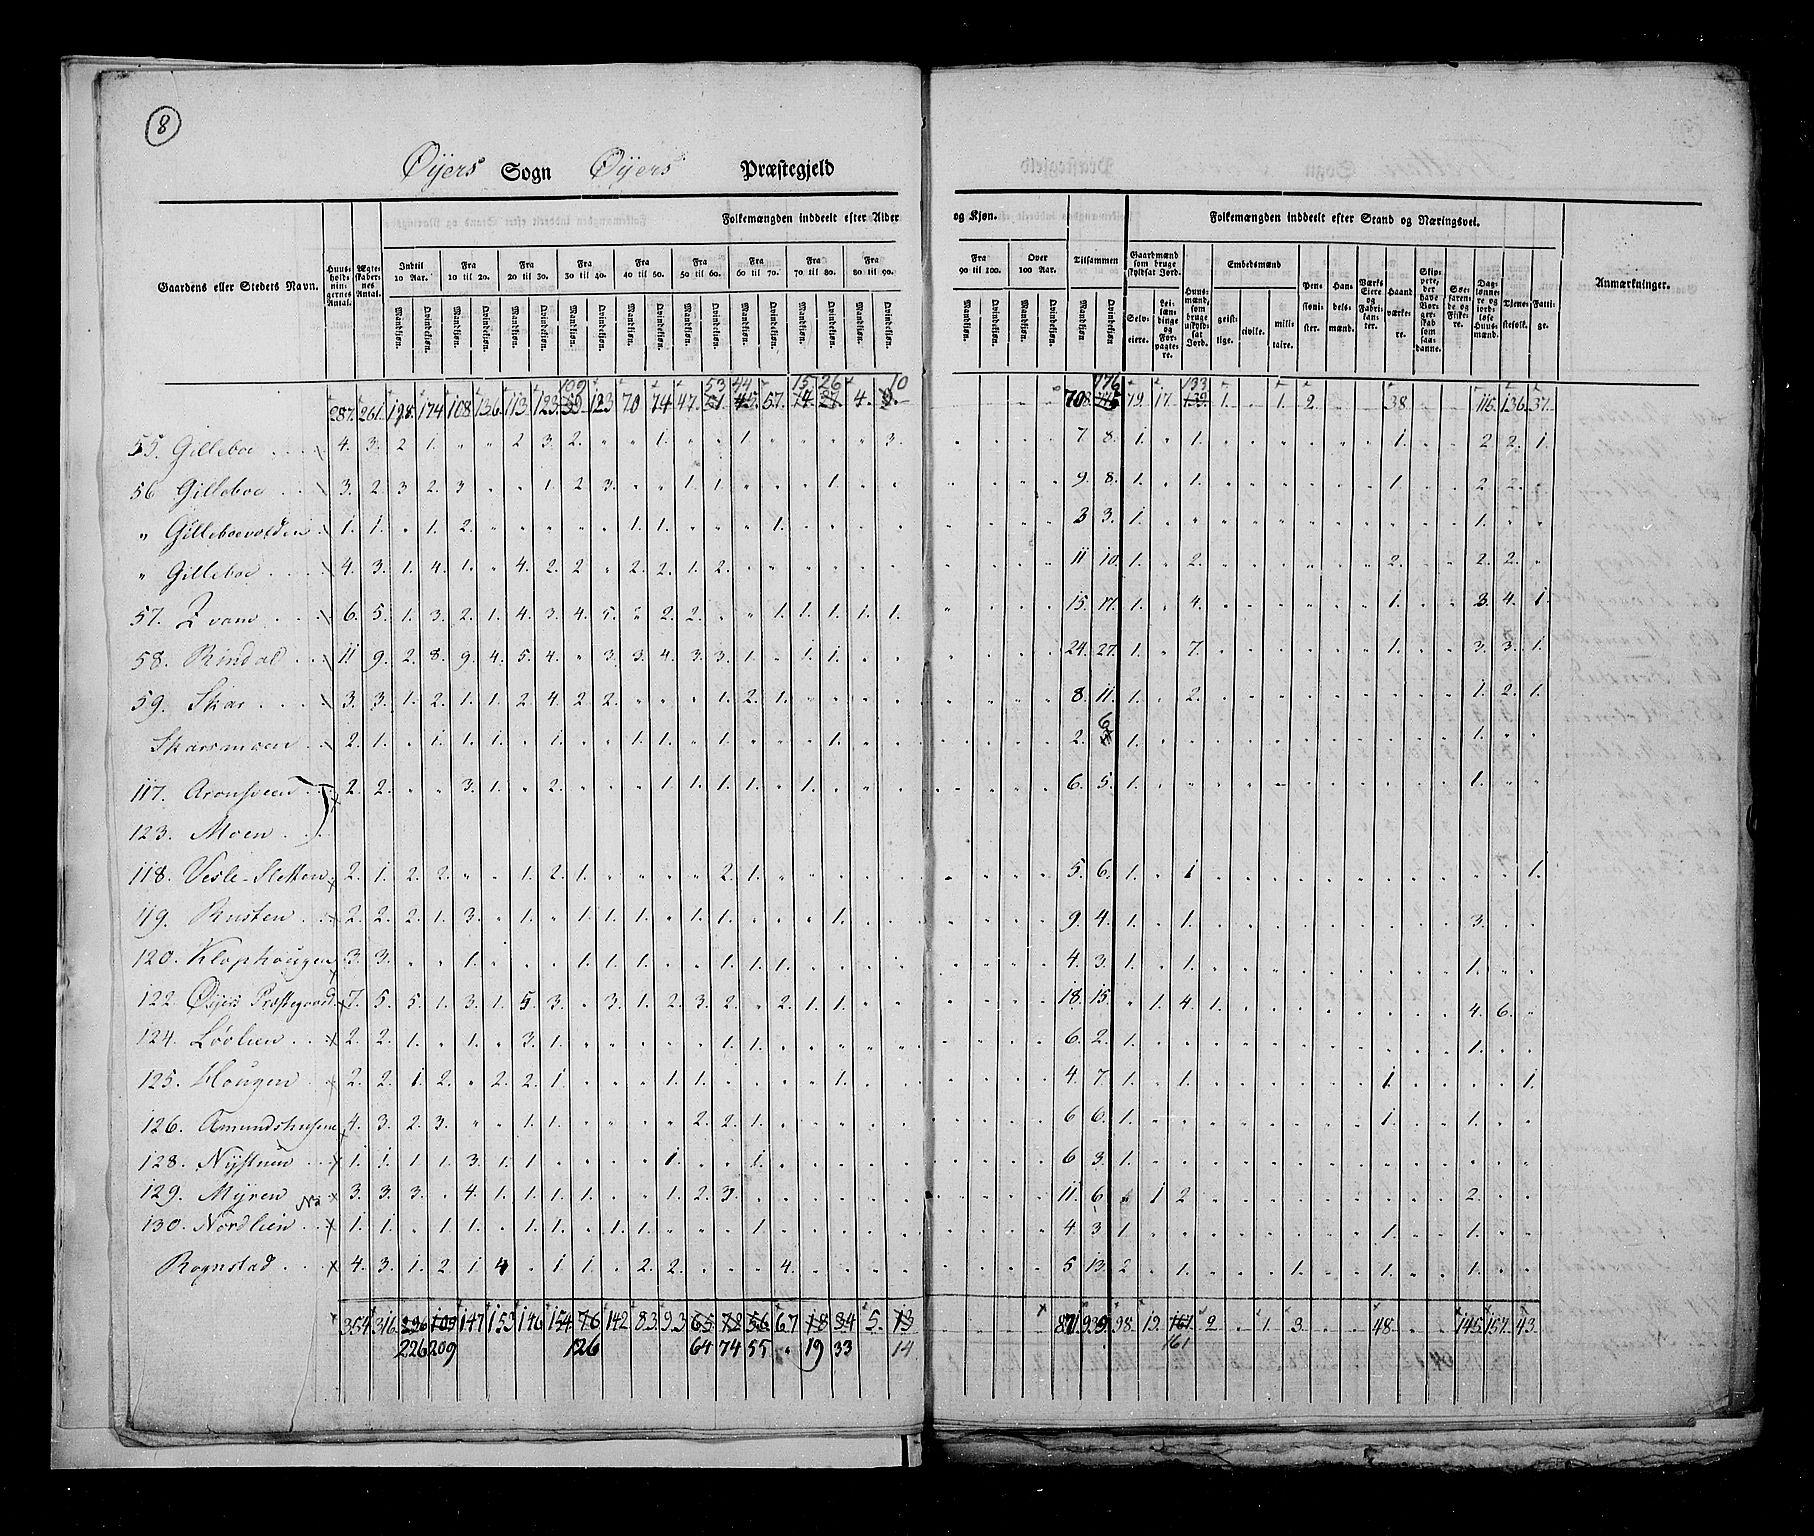 8
Øyers Sogn Øyers Præstegjeld
Gaardens eller Stedets Navn. Huusholdningernes Antal. Ægteskabernes Antal. Folkemængden inddeelt efter Alder og Kjøn. Tilsammen Folkemængden inddeelt efter Stand og Næringsvei. Anmærkninger.
Indtil 10 Aar. Fra 10 til 20. Fra 20 til 30. Fra 30 til 40. Fra 40 til 50. Fra 50 til 60. Fra 60 til 70. Fra 70 til 80. Fra 80 til 90. Fra 90 til 100. Over 100 Aar.
Mandkjøn. Qvindekjøn. Mandkjøn. Qvindekjøn. Mandkjøn. Qvindekjøn. Mandkjøn. Qvindekjøn. Mandkjøn. Qvindekjøn. Mandkjøn. Qvindekjøn. Mandkjøn. Qvindekjøn. Mandkjøn. Qvindekjøn. Mandkjøn. Qvindekjøn. Mandkjøn. Qvindekjøn. Mandkjøn. Qvindekjøn. Mandkjøn. Qvindekjøn.
Gaardmænd som bruge skyldsat Jord. Selveiere. Leilændinge og Forpagtere. Huusmænd, som bruge uskyldsat Jord. Embedsmænd geistlige. civile. militaire. Pensionister. Handelsmænd. Værks Eiere og Fabrikanter. Haandværkere. Skippere, der have Borgerskab som saadanne. Søefarende og Fiskere. Daglønnere og jordløse Huusmænd. Tjenestefolk. Fattige.
109 53 44 15 26 10 776 133
287. 261. 198. 174 108 136. 113. 123. 123 70 74 47. 57. 4. 708 79. 17. 1. 1. 2. 38. 116. 136. 37.
55. Gilleboe 4. 3. 2 1. „ „ 2 3. 2. „ „ 1. „ „ 1 „ „ „ „ 3. 7 8. 1. „ 1. 1. 2 2. 1.
56 Gilleboe 3. 2. 3 2. 3 „ „ 1. 2 3. „ „ 1. 1. „ „ „ 1. „ „ 9. 8. 1. „ 1. 1. 2 2.
„ Gilleboevolden 1. 1. „ 1. 2. „ „ „ „ „ 1. 1. „ „ „ 1. 3 3. 1. 1.
„ Gilleboe 4. 3. 1. 4. 1. „ 4. 2. 2 „ 2. 2. 1. 2. 11 10. 1. „ 2. 2. 2. 2.
57. Zvam 6. 5. 1. 3. 2. 1. 4. 3. 4. 5. „ 2. 2. „ „ 1. 1. 1. 1. 1. 15. 17. 1. „ 4. 1. 3. 4. 1.
58. Rindal 11 9. 2. 8. 9. 4. 5. 4. „ 3. 3. 4. 3. 3. 1. „ 1. 1. 24. 27. 1. „ 7. 1. 3. 3. 1.
59. Skar 3. 3. 1. 2. 1. 1. 2. 4. 2. 2. „ „ „ 1. 2. 1. 8. 11. 1. „ 2. 1. 2. 1.
Skarsmoen 2. 1. „ 1. 1. 1. „ 1. „ „ 1. 1. „ 1. „ „ „ 1. 2. 6 1. 1.
117. Aronsveen 2. 2. „ „ 3. 1. „ 2. „ „ „ 1. 1. 1. 1. „ 1. 6. 5. 1. 1.
123. Moen
118. Vesle-Sletten 2. 1. 2. 2. „ „ 1. 2. 1. „ „ „ „ 2. 1. 5. 6. 1. „ 1 1.
119. Rusten 2. 2. 2. 1. 3. „ 1. „ 1. 1. 1. „ 1. 1. „ „ „ 1. 9. 4. 1. „ 1. 3.
120. Klophougen 3. 3. „ „ 1. „ „ „ 1. 1. 1. „ „ 1. 1. 1. 4. 3. 1. „ 1. 1.
122. Øyers Præstegaard 7. 5. 5. 1. 3. 1. 5. 3. „ 3. 1. 2. 3. 2. „ 2. 1. 1. 18. 15. „ 1. 4. 1. 4. 6.
124. Lövlien 2. 2. 1. „ 1. „ 3. 1. „ „ „ „ „ 1. 1. 6. 2. 1. 1.
125. Hougen 2. 2. 1. 2. „ 2. 2. 1. „ „ „ 1. 1. „ „ „ „ 1. 4. 7. 1. „ 1. 1. 1.
126. Amundshusene 4. 3. 2. 3. „ „ 1. 1. „ „ „ „ 2. 2. 1. 6 6. 1. 1. 1.
128. Nystuen 1. 1. 1. 1. 3. 1. 1 „ „ „ „ 1. „ „ 1. 6 3. 1.
129. Myren 3. 3. 3. „ 4. 1. 1. 1. 1. „ „ 1. 2. 3. 11. 6. „ 1 2. 2.
130. Nordlien 1. 1. „ 1. 1. „ 1. 1. „ 1. 1. „ „ „ 1. 4 3. 1. 1. 1.
Rognstad 4. 3. 1. 2. 1 4 „ 1. 1. „ 2. 2. „ „ „ 4. 5 13. 2 „ 1. 1. 1. 1.
354 316 226 109 147 153 146 154 76 142 83. 93 65 72 56 67 18 34 5. 13 871. 939. 98. 19. 161 2 1. 3. 48. 145. 157. 43.
226 209 126 64 74 55 „ 19 33 14 161